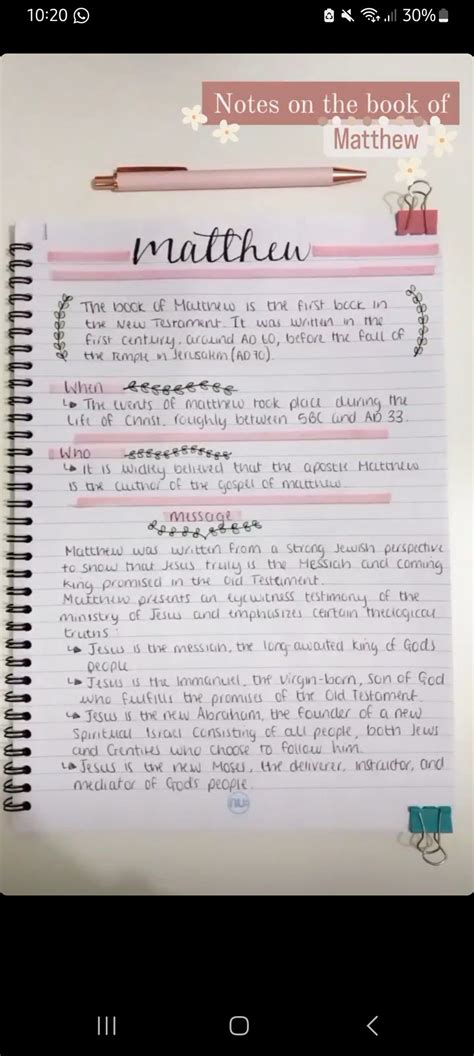 10:20
30%
Notes on the book of
Matthew
matthew
The book of Matthew is the first book in
the New Testament. It was written in the
first century, around AD 60, before the fall of
the temple in Jerusalem (AD 70).
When
↳ The events of matthew took place during the
life of Christ, roughly between 5BC and AD 33.
Who
↳ It is widley believed that the apostle Matthew
is the author of the gospel of matthew.
message
Matthew was written from a strong Jewish perspective
to show that Jesus truly is the Messiah and coming
king promised in the Old Testament.
Matthew presents an eyewitness testimony of the
ministry of Jesus and emphasizes certain theological
truths:
↳ Jesus is the messiah, the long-awaited king of Gods
people
↳ Jesus is the Immanuel, the virgin-born, son of God
who fulfills the promises of the Old Testament
↳ Jesus is the new Abraham, the founder of a new
Spiritual Israel consisting of all people, both Jews
and Gentiles who choose to follow him.
↳ Jesus is the new Moses, the deliverer, instructor, and
mediator of Gods people.
nu: